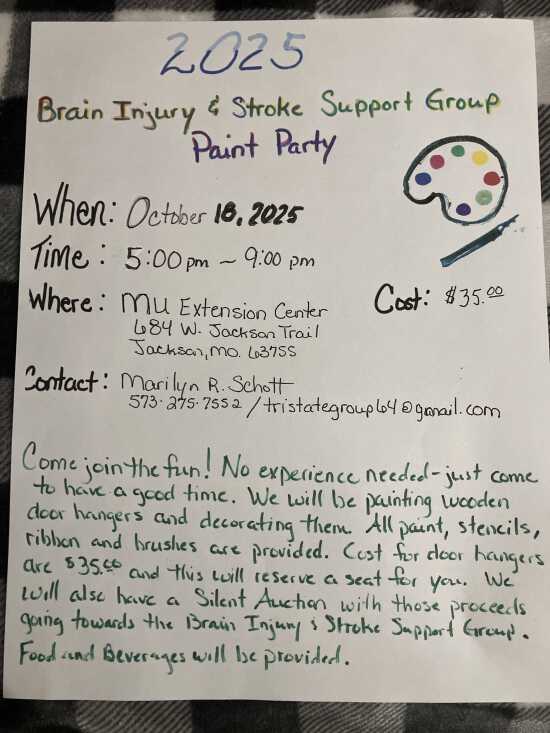 2025
Brain Injury & Stroke Support Group
Paint Party
When: October 18, 2025
Time: 5:00 pm ~ 9:00 pm
Where: MU Extension Center
684 W. Jackson Trail
Jackson, MO. 63755
Cost: $35.00
Contact: Marilyn R. Schott
573-275-7552 / tristategroup64@gmail.com
Come join the fun! No experience needed - just come
to have a good time. We will be painting wooden
door hangers and decorating them. All paint, stencils,
ribbon and brushes are provided. Cost for door hangers
are $35.00 and this will reserve a seat for you. We
will also have a Silent Auction with those proceeds
going towards the Brain Injury & Stroke Support Group.
Food and Beverages will be provided.